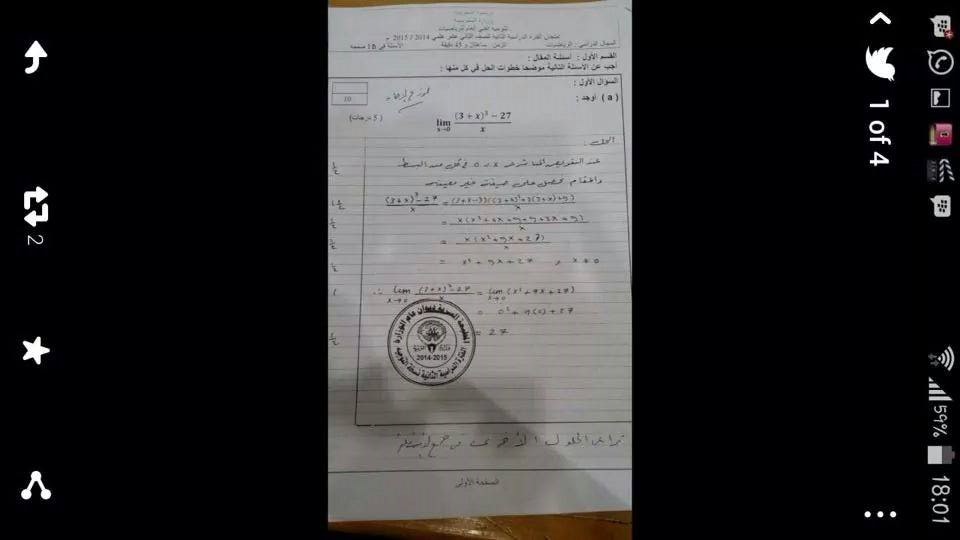 وزارة التربية
التوجيه الفني العام للرياضيات
امتحان الفترة الدراسية الثانية للصف الثاني عشر علمي 2014 / 2015 م
المجال الدراسي : الرياضيات الزمن ساعتان و 45 دقيقة الأسئلة في 10 صفحة
القسم الأول : أسئلة المقال :
أجب عن الأسئلة التالية موضحا خطوات الحل في كل منها :
السؤال الأول :
10
( a ) أوجد :
( 5 درجات)
lim x→0 (3 + x)³ − 27 / x
الحل :
عند التعويض المباشر عن x بـ 0 في كل من البسط
والمقام نحصل على صيغة غير معينة
(3+x)³ − 27 / x = (3+x−3)((3+x)²+3(3+x)+9) / x
= x(x²+6x+9+9+3x+9) / x
= x(x²+9x+27) / x
= x²+9x+27 , x≠0
∴ lim x→0 (3+x)³−27 / x = lim x→0 (x²+9x+27)
= 0²+9(0)+27
= 27
2014-2015
تراعى الحلول الأخرى في جميع
الصفحة الأولى
1 of 4
2
59%
18:01